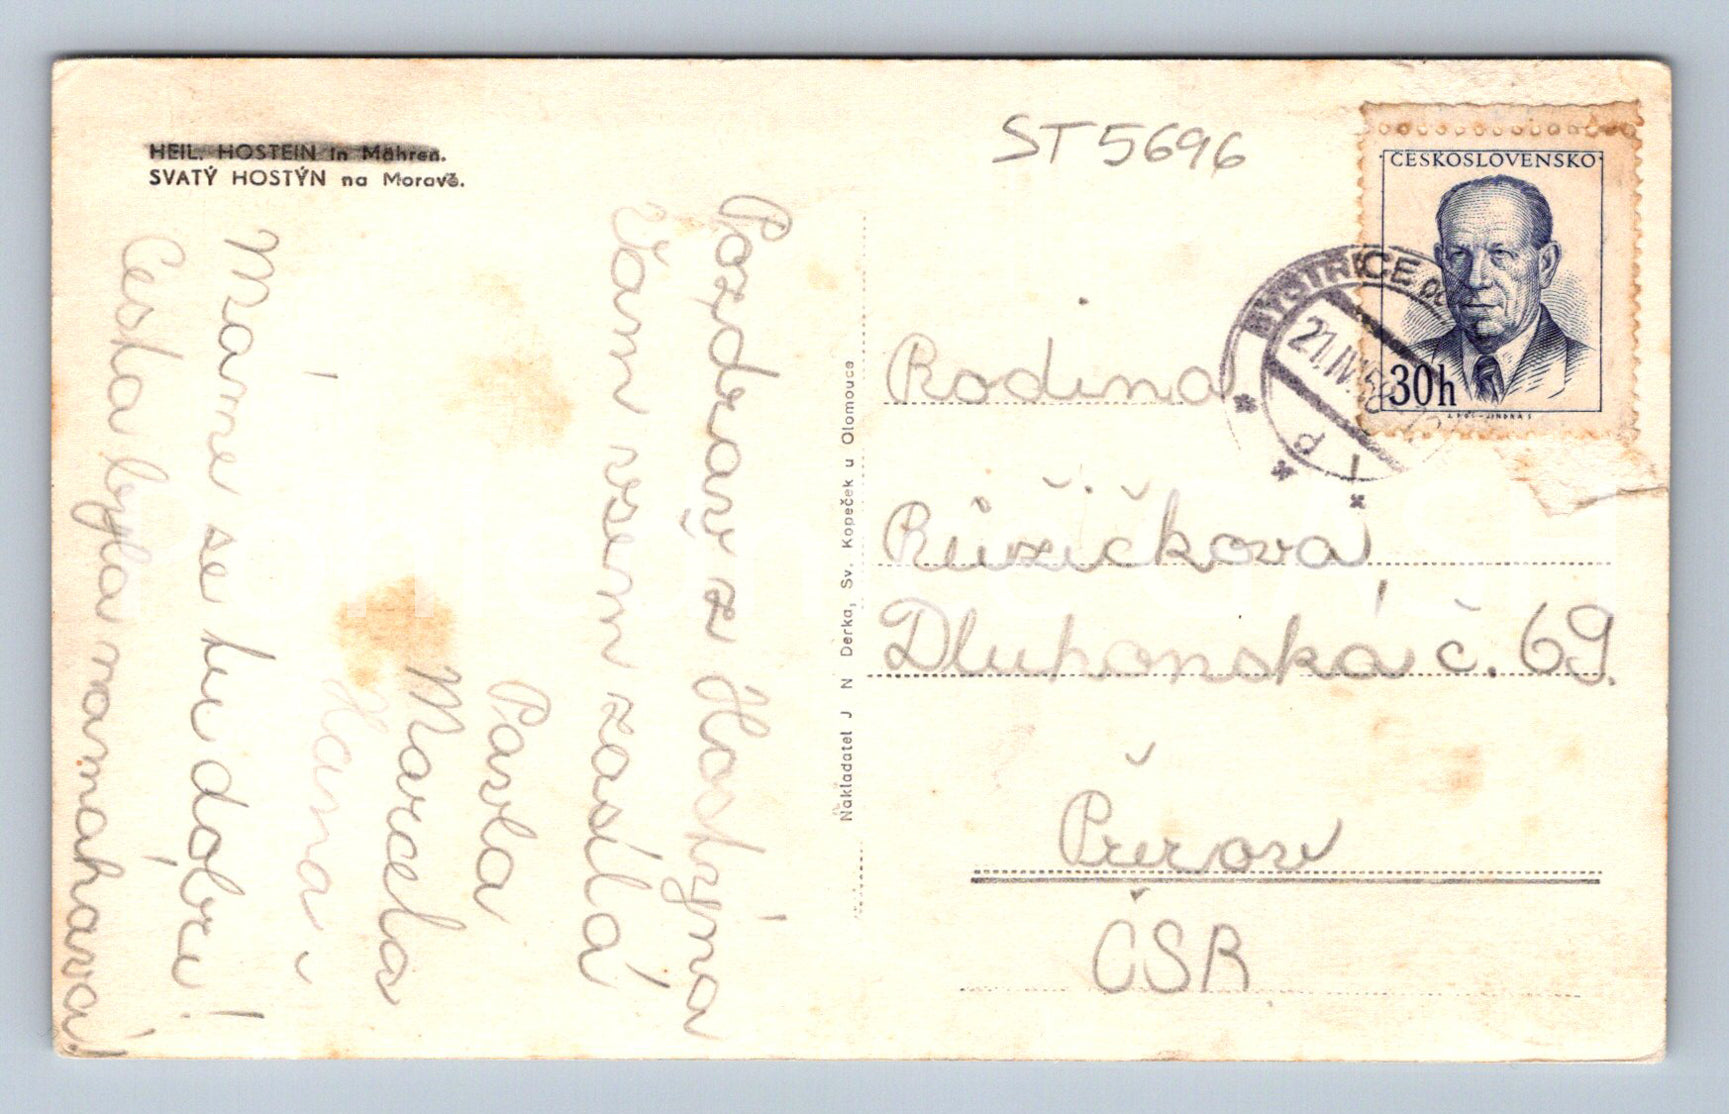 HEIL. HOSTEIN in Mähren.
SVATÝ HOSTÝN na Moravě.
ST5696
ČESKOSLOVENSKO
30h
BYSTŘICE POD
21.IV.58
Pozdravy z Hostýna
Vám všem zasílá
Pavla
Marcela
Hana.
Máme se tu dobře!
Cesta byla namáhavá!
Nakladatel J N Derka, Sv. Kopeček u Olomouce
Rodina
Růžičková
Dluhonská č. 69.
Přerov
ČSR